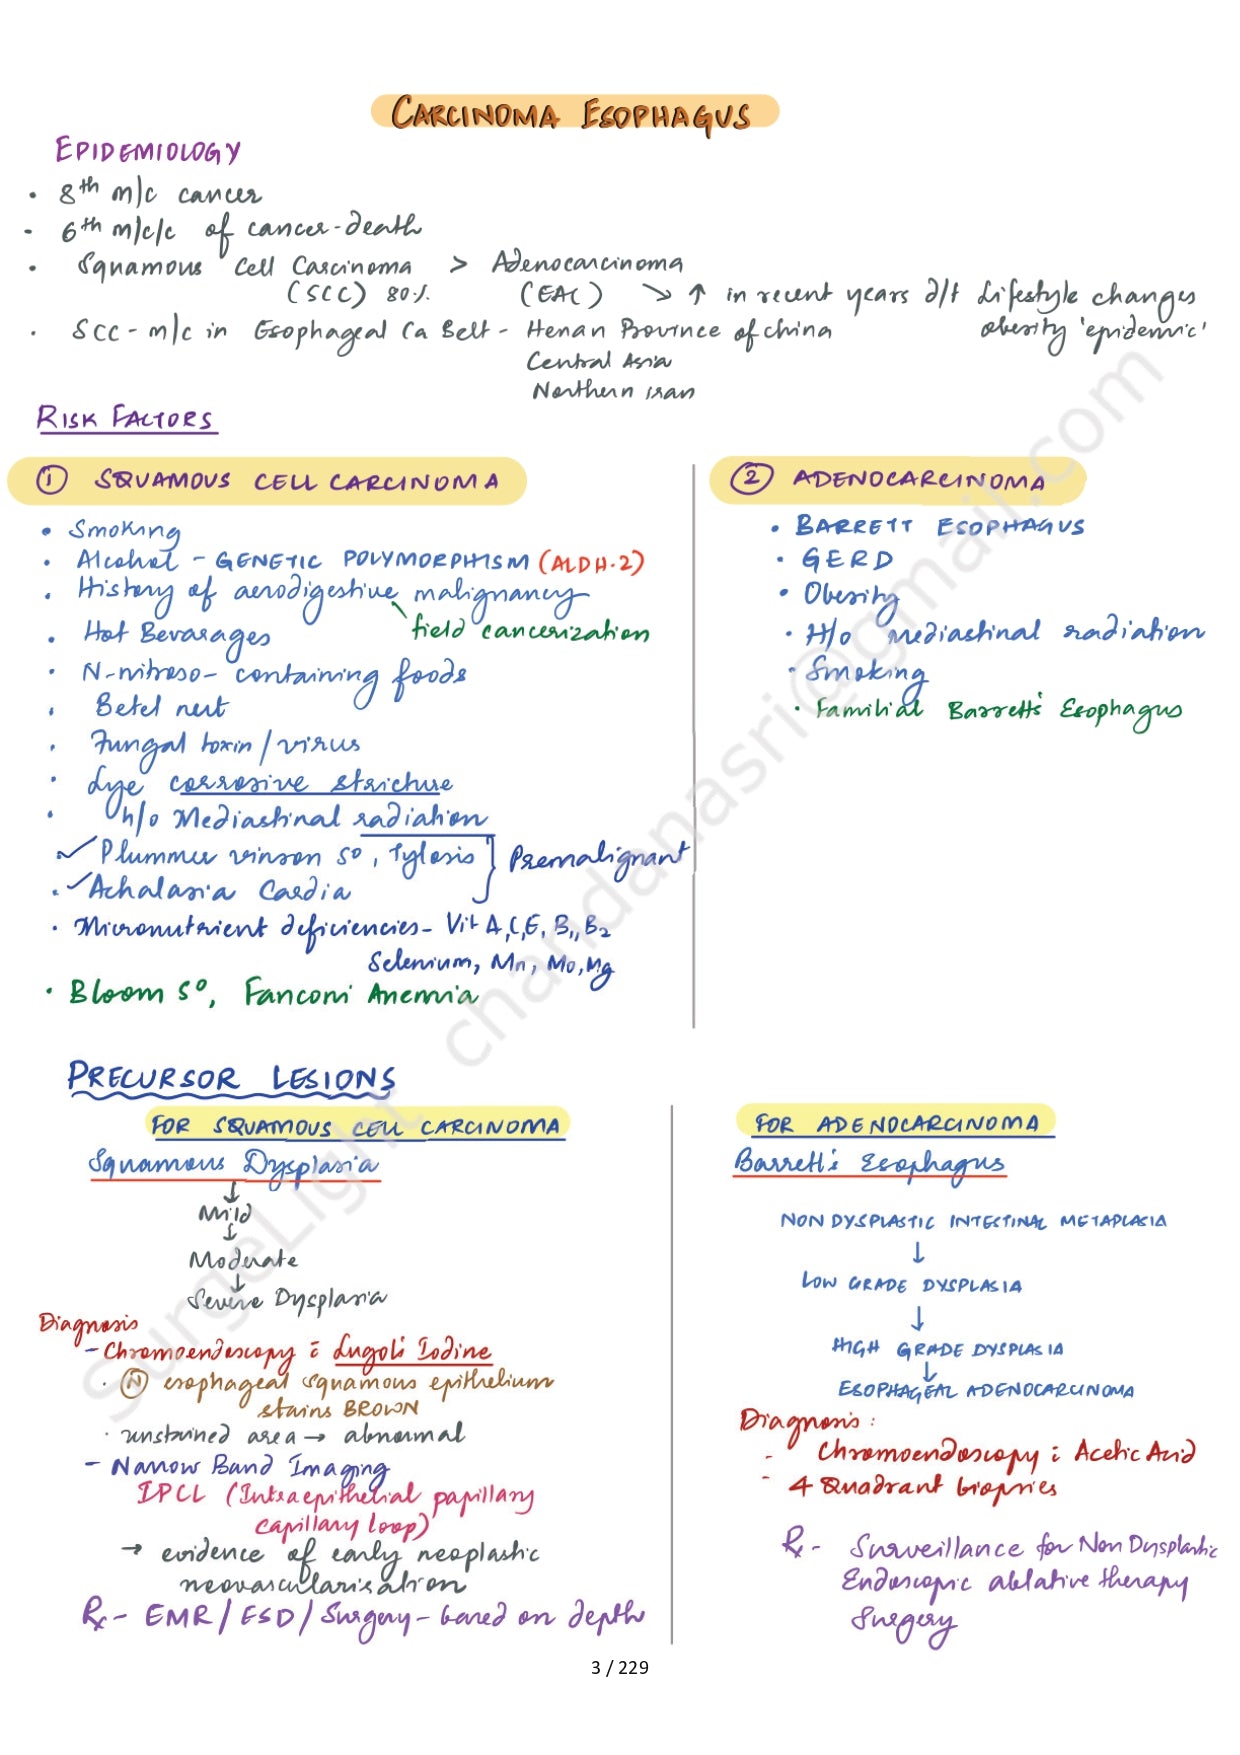 CARCINOMA ESOPHAGUS
EPIDEMIOLOGY
• 8th m/c cancer
• 6th m/c/c of cancer-death
• Squamous Cell Carcinoma > Adenocarcinoma
(SCC) 80%. (EAC) ↘ ↑ in recent years d/t Lifestyle changes
obesity 'epidemic'
• SCC - m/c in Esophageal Ca Belt - Henan Province of China
Central Asia
Northern iran
RISK FACTORS
① SQUAMOUS CELL CARCINOMA
• Smoking
• Alcohol - GENETIC POLYMORPHISM (ALDH-2)
• History of aerodigestive malignancy
field cancerization
• Hot Bevarages
• N-nitroso- containing foods
• Betel nut
• Fungal toxin / virus
• Lye corrosive stricture
• h/o Mediastinal radiation
✓ Plummer vinson S°, Tylosis } Premalignant
• ✓ Achalasia Cardia
• Micronutrient deficiencies - Vit A, C, E, B1, B2
Selenium, Mn, Mo, Mg
• Bloom S°, Fanconi Anemia
② ADENOCARCINOMA
• BARRETT ESOPHAGUS
• GERD
• Obesity
• H/o mediastinal radiation
• Smoking
• Familial Barrett's Esophagus
PRECURSOR LESIONS
FOR SQUAMOUS CELL CARCINOMA
Squamous Dysplasia
↓
Mild
↓
Moderate
↓
Severe Dysplasia
Diagnosis
- Chromoendoscopy c̄ Lugol's Iodine
• Ⓝ esophageal squamous epithelium
stains BROWN
• unstained area → abnormal
- Narrow Band Imaging
IPCL (Intraepithelial papillary
capillary loop)
→ evidence of early neoplastic
neovascularisation
Rx - EMR / ESD / Surgery - based on depth
FOR ADENOCARCINOMA
Barrett's Esophagus
NON DYSPLASTIC INTESTINAL METAPLASIA
↓
LOW GRADE DYSPLASIA
↓
HIGH GRADE DYSPLASIA
↓
ESOPHAGEAL ADENOCARCINOMA
Diagnosis:
- Chromoendoscopy c̄ Acetic Acid
- 4 Quadrant biopsies
Rx - Surveillance for Non Dysplastic
Endoscopic ablative therapy
Surgery
SurgeLight chandanasri@gmail.com
3 / 229